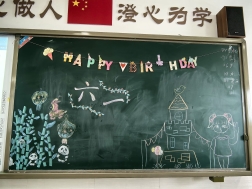 做人 澄心为学
HAPPY BIRTHDAY
六一